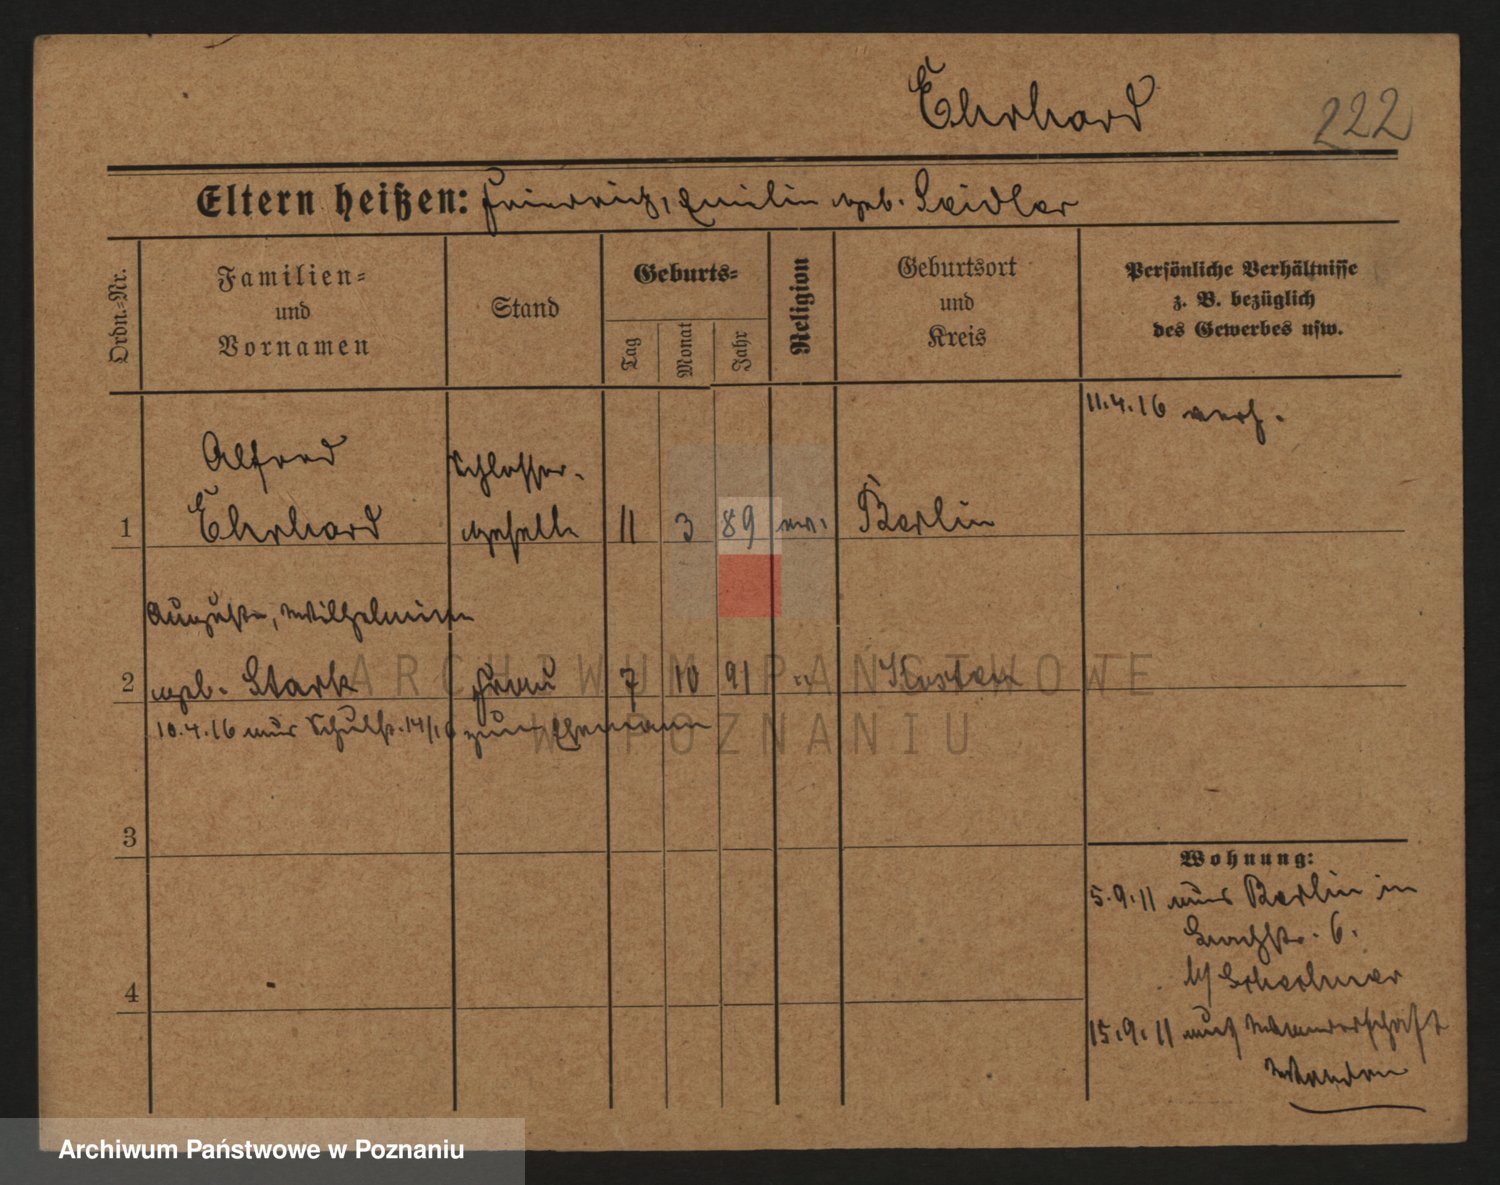 Ehrhard
222
Eltern heißen: Friedrich, Emilie geb. Seidler
Ordn.-Nr.
Familien-
und
Vornamen
Stand
Geburts-
Tag
Monat
Jahr
Religion
Geburtsort
und
Kreis
Persönliche Verhältnisse
z. B. bezüglich
des Gewerbes usw.
11.4.16 verh.
Alfred
Schlosser-
1 Ehrhard geselle 11 3 89 ev. Berlin
Auguste, Wilhelmine
2 geb. Stark Frau 7 10 91 " Kosten
10.4.16 aus Schulstr. 14/16 zum Ehemann
3
4
Wohnung:
5.9.11 aus Berlin in
6.
b/
15.9.11 auf Wanderschaft
ARCHIWUM PAŃSTWOWE
W POZNANIU
Archiwum Państwowe w Poznaniu